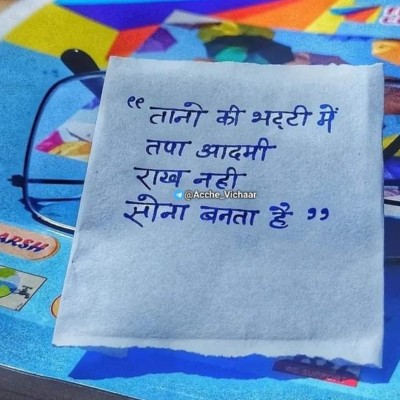 “ तानो की भट्टी में
तपा आदमी
राख नही
@Acche_Vichaar
सोना बनता है ”
ARSH